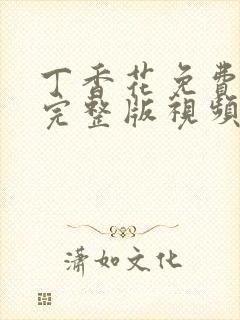 丁香花免費
完整版視頻
瀟如文化